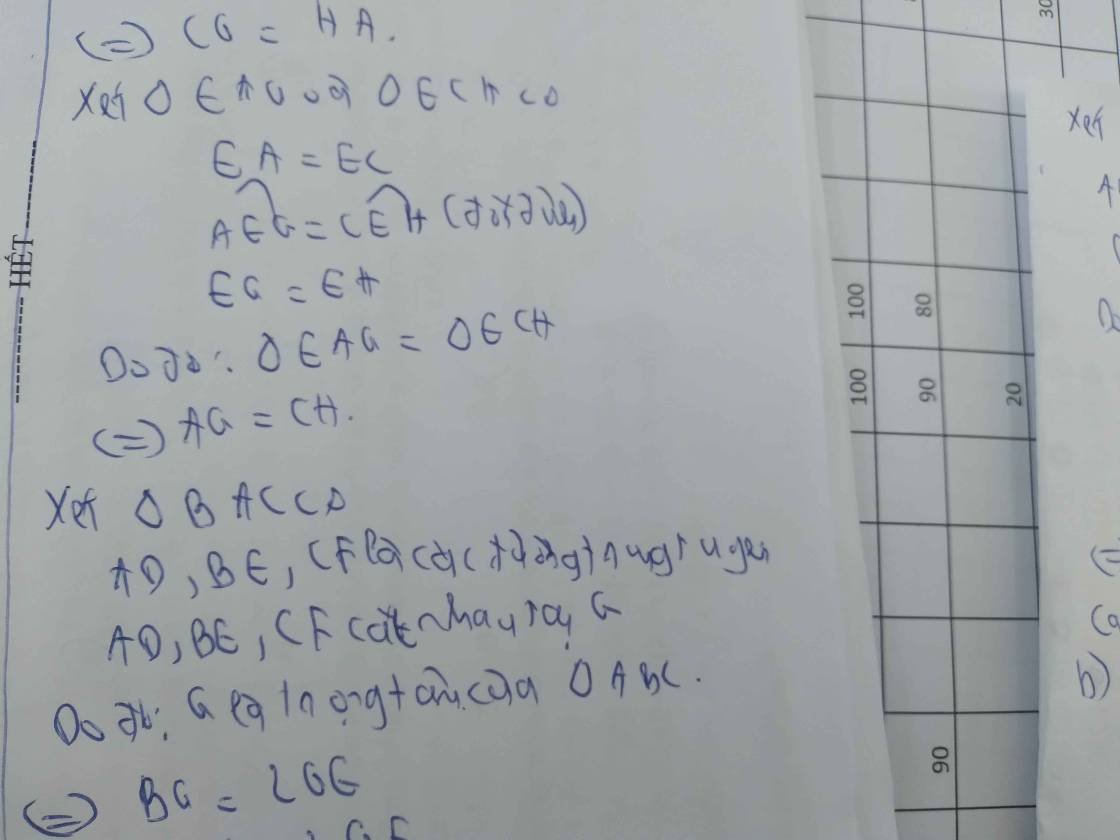 (=) CG = HA.
Xét Δ EAG và Δ ECH có
EA = EC
AEG = CEH (đối đỉnh)
EG = EH
Do đó: Δ EAG = Δ ECH
(=) AG = CH.
Xét Δ BAC có
AD, BE, CF là các đường trung tuyến
AD, BE, CF cắt nhau tại G
Do đó: G là trọng tâm của Δ ABC.
(=) BG = 2GE
HẾT
30
100
80
100
90
20
90
Xét
b)